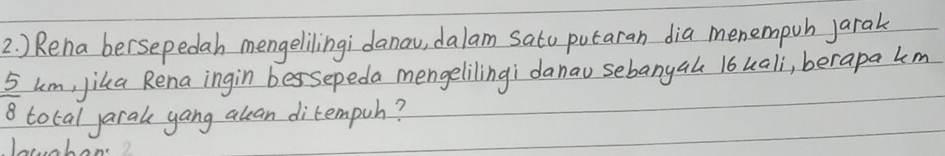 2.) Rena bersepedah mengelilingi danau, dalam satu putaran dia menempuh jarak
5/8 km, jika Rena ingin bersepeda mengelilingi danau sebanyak 16 kali, berapa km
total jarak yang akan ditempuh?
Jawaban: